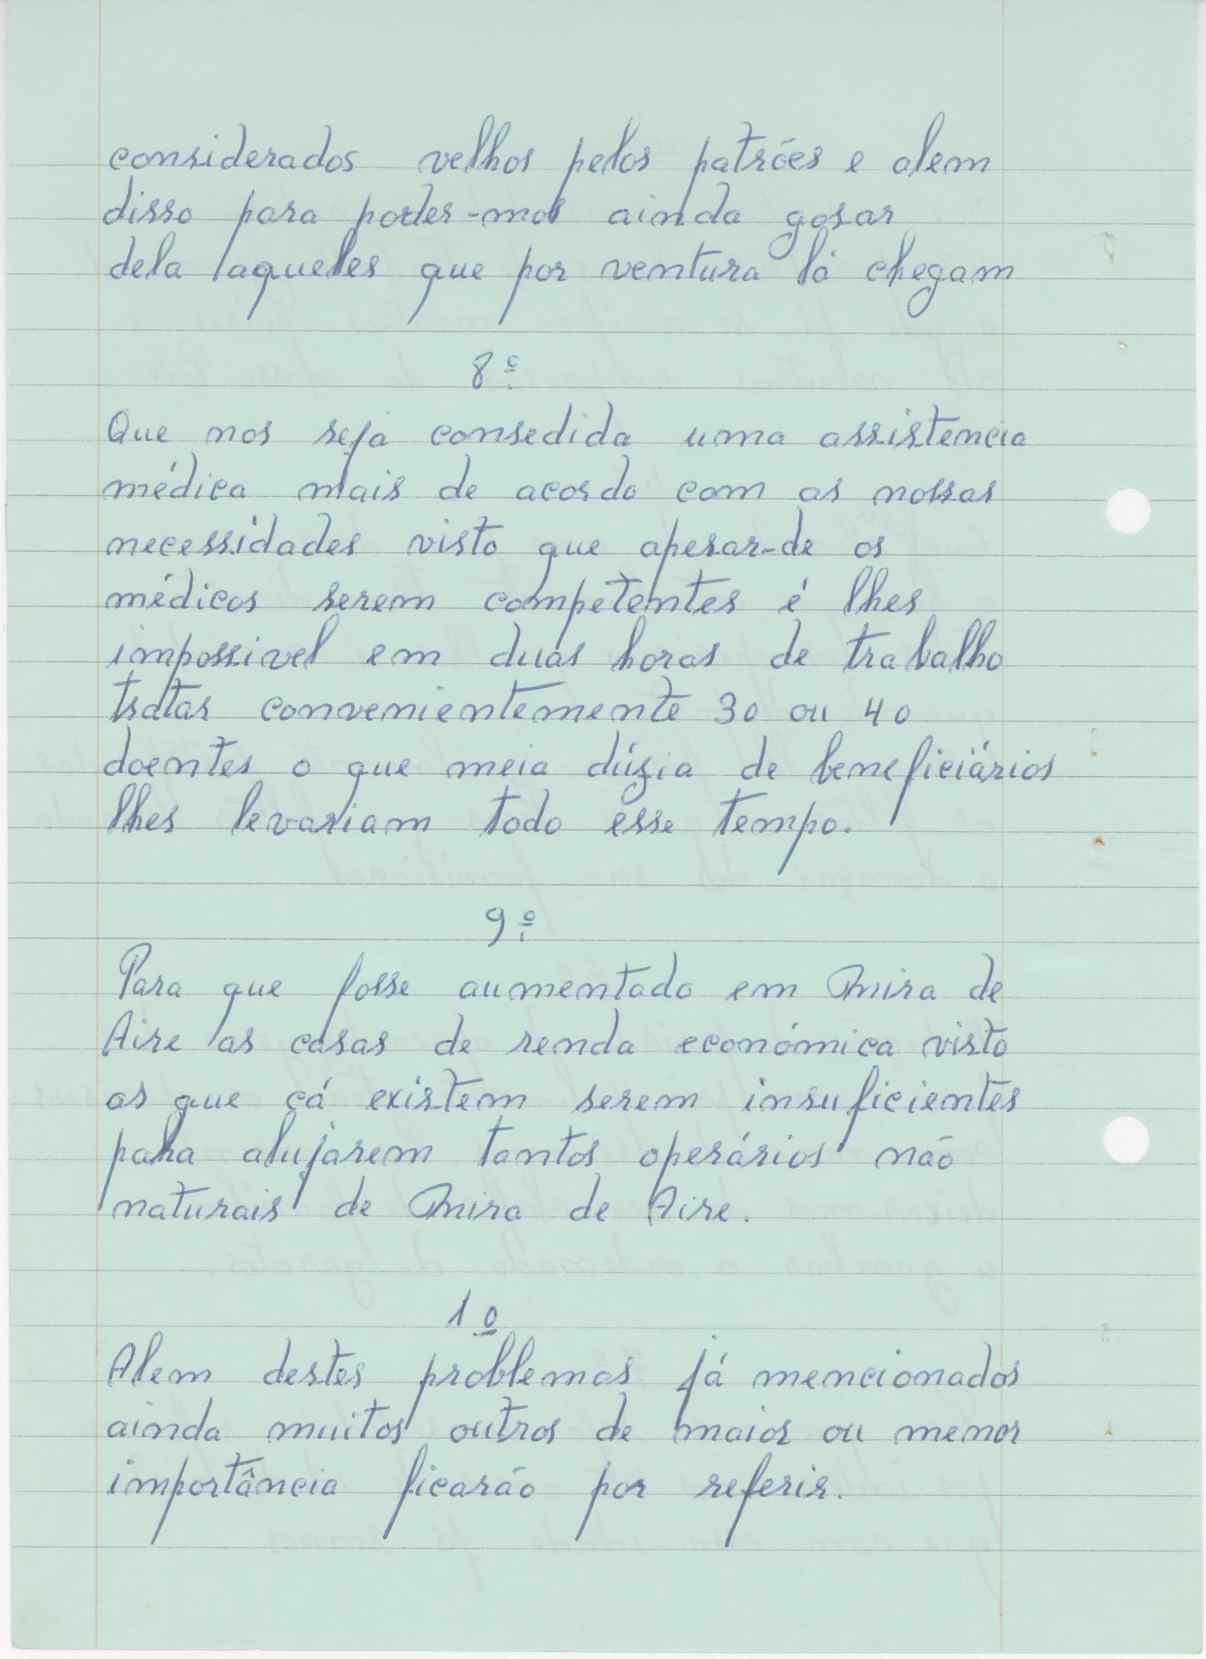 considerados velhos pelos patrões e alem
disso para poder-mos ainda gosar
dela aqueles que por ventura lá chegam
8º
Que nos seja consedida uma assistencia
médica mais de acordo com as nossas
necessidades visto que apesar-de os
médicos serem competentes é lhes
impossivel em duas horas de trabalho
tratar convenientemente 30 ou 40
doentes o que meia dúzia de beneficiários
lhes levariam todo esse tempo.
9º
Para que fosse aumentado em Mira de
Aire as casas de renda económica visto
as que cá existem serem insuficientes
para alujarem tantos operários não
naturais de Mira de Aire.
1º
Alem destes problemas já mencionados
ainda muitos outros de maior ou menor
importância ficarão por referir.